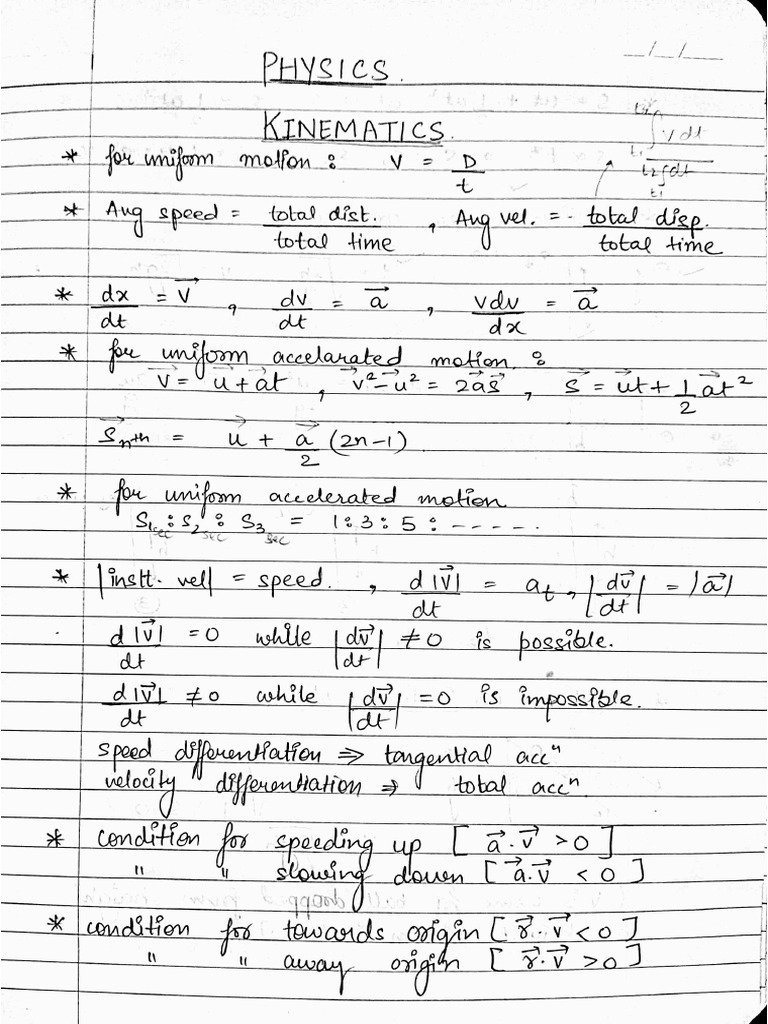 __/__/__
PHYSICS.
KINEMATICS.
* for uniform motion : V = D/t
∫_{t1}^{t2} v dt / ∫_{t1}^{t2} dt
* Avg speed = total dist. / total time , Avg vel. = total disp. / total time
* dx/dt = v⃗ , dv/dt = a⃗ , vdv/dx = a⃗
* for uniform accelarated motion :
v⃗ = u⃗ + a⃗t , v⃗² - u⃗² = 2a⃗s⃗ , s⃗ = u⃗t + 1/2 a⃗t²
s⃗_nth = u⃗ + a⃗/2 (2n-1)
* for uniform accelerated motion
S₁sec : S₂sec : S₃sec = 1:3:5: -----.
* |instt. vel| = speed. , d|v⃗|/dt = a_t , |dv⃗/dt| = |a⃗|
d|v⃗|/dt = 0 while |dv⃗/dt| ≠ 0 is possible.
d|v⃗|/dt ≠ 0 while |dv⃗/dt| = 0 is impossible.
speed differentiation ⇒ tangential accⁿ
velocity differentiation ⇒ total accⁿ.
* condition for speeding up [ a⃗.v⃗ > 0 ]
" " slowing down [ a⃗.v⃗ < 0 ]
* condition for towards origin [ r⃗.v⃗ < 0 ]
" " away origin [ r⃗.v⃗ > 0 ]